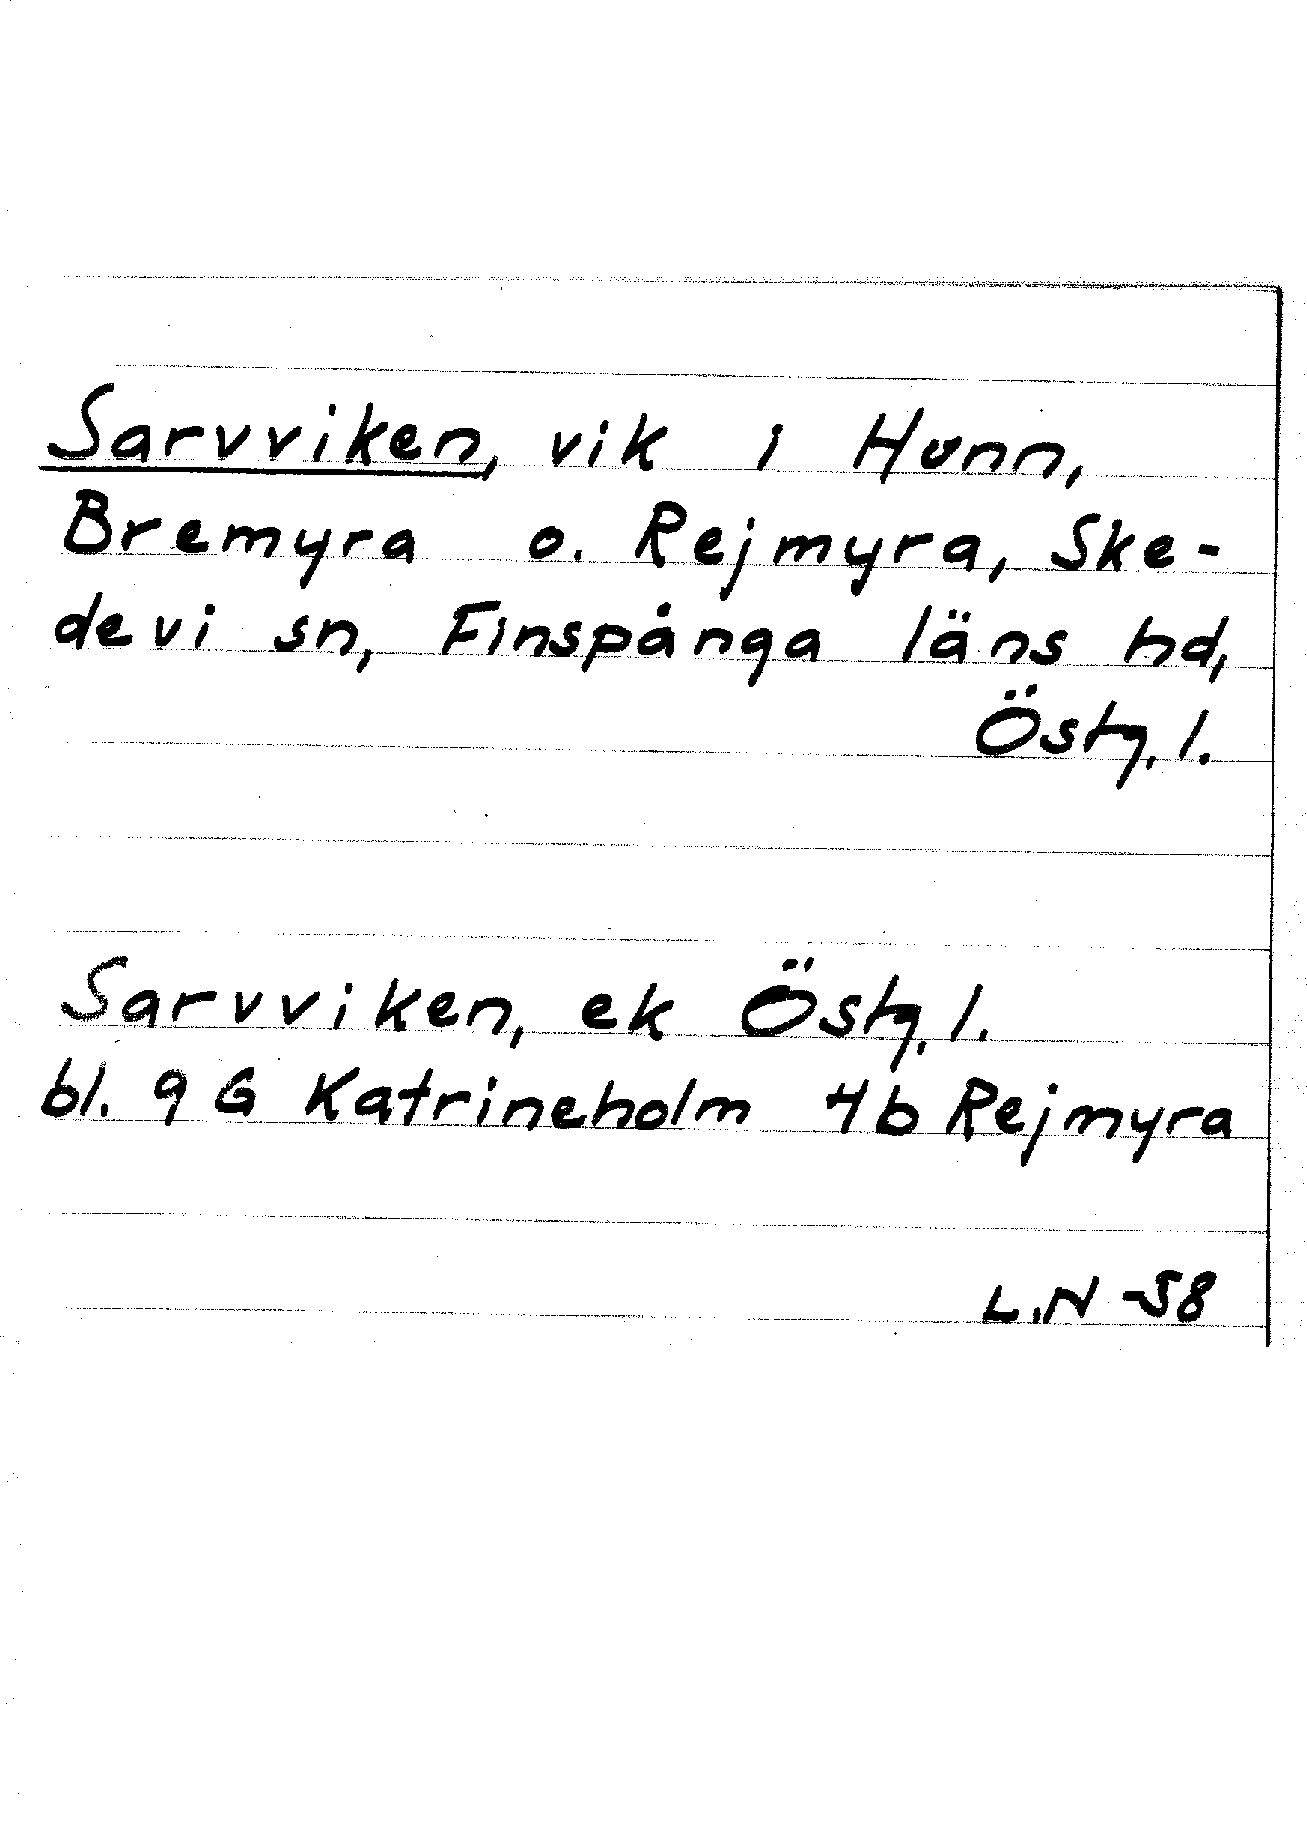 Sarvviken, vik i Hunn,
Bremyra o. Rejmyra, Ske-
devi sn, Finspånga läns hd,
Östg. l.
Sarvviken, ek Östg. l.
bl. 9 G Katrineholm 4b Rejmyra
L.N -58